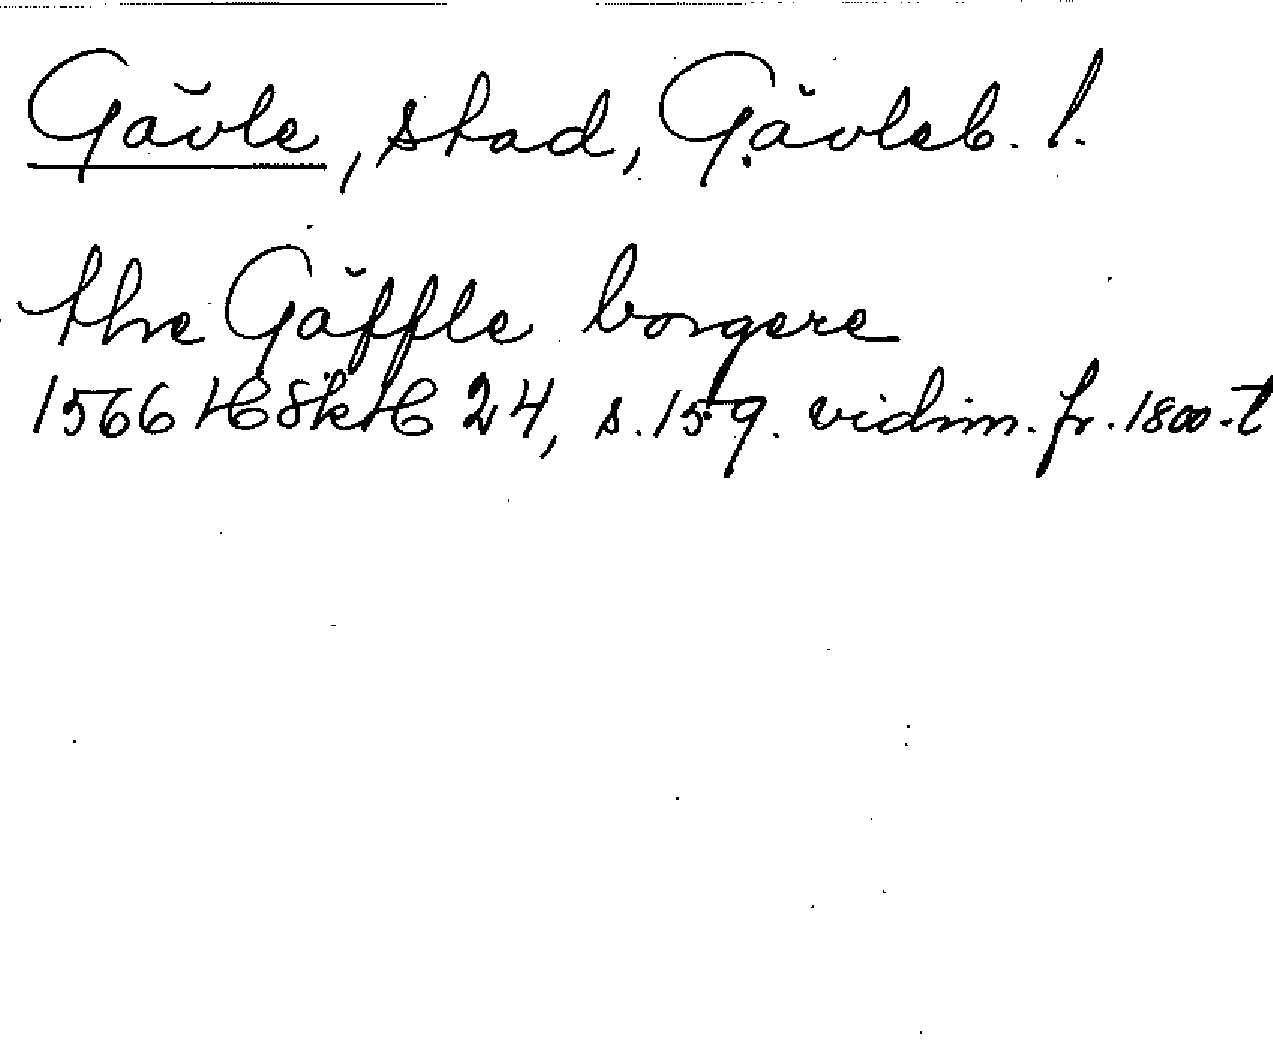 Gävle, stad, Gävleb. l.
the Gäffle borgere
1566 HSkH 24, s. 159. vidim. fr. 1800-t